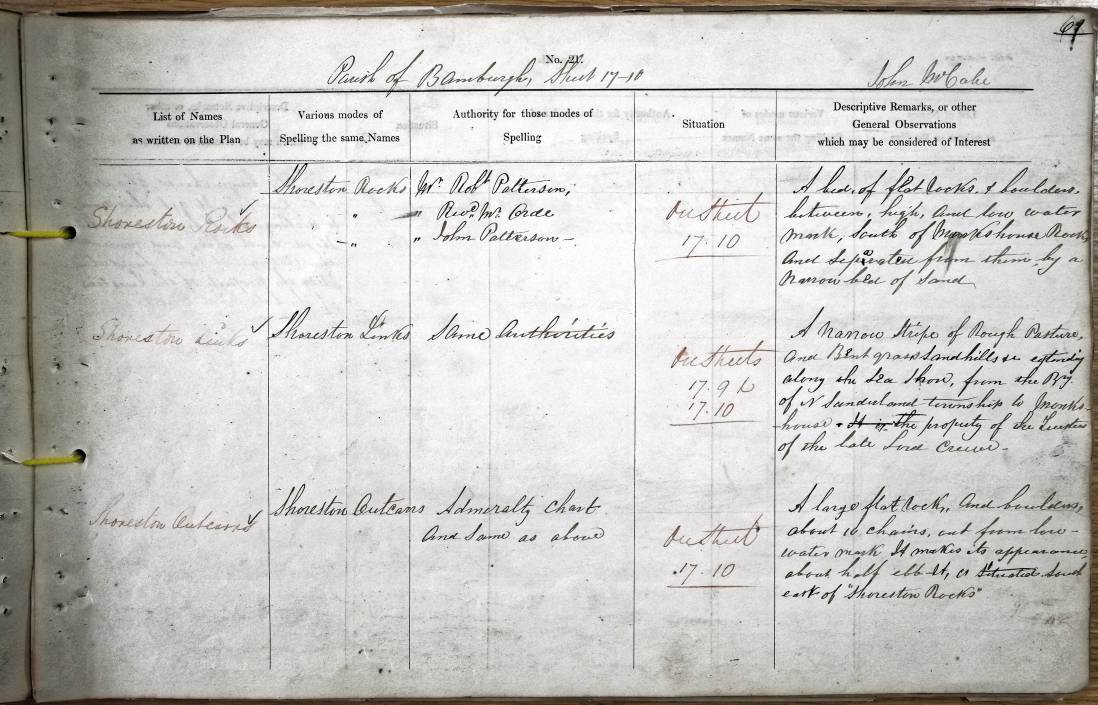 69
No. 21.
Parish of Bamburgh, Sheet 17-10
John McCabe
List of Names
as written on the Plan
Various modes of
Spelling the same Names
Authority for those modes of
Spelling
Situation
Descriptive Remarks, or other
General Observations
which may be considered of Interest
Shoreston Rocks
Shoreston Rocks
"
"
Mr. Robt Patterson,
" Revd. Mr. Orde
" John Patterson
On Sheet
17.10
A bed, of flat rocks, & boulders,
between, high, and low water
mark, South of Monkshouse Rocks
and separated from them, by a
Narrow bed of Sand
Shoreston Links
Shoreston Links
Same authorities
On Sheets
17.9 &
17.10
A narrow Stripe of Rough Pasture,
and Bent grass Sandhills &c extending
along the Sea Shore, from the Bdy.
of N Sunderland township to Monks-
house. It is the property of the Trustees
of the late Lord Crewe.
Shoreston Outcars
Shoreston Outcars
Admeralty Chart
and Same as above
On Sheet
17.10
A large flat rock, and boulders,
about 10 chains, out from low-
water mark It makes its appearance,
about half ebb It, is situated South
east of "Shoreston Rocks"